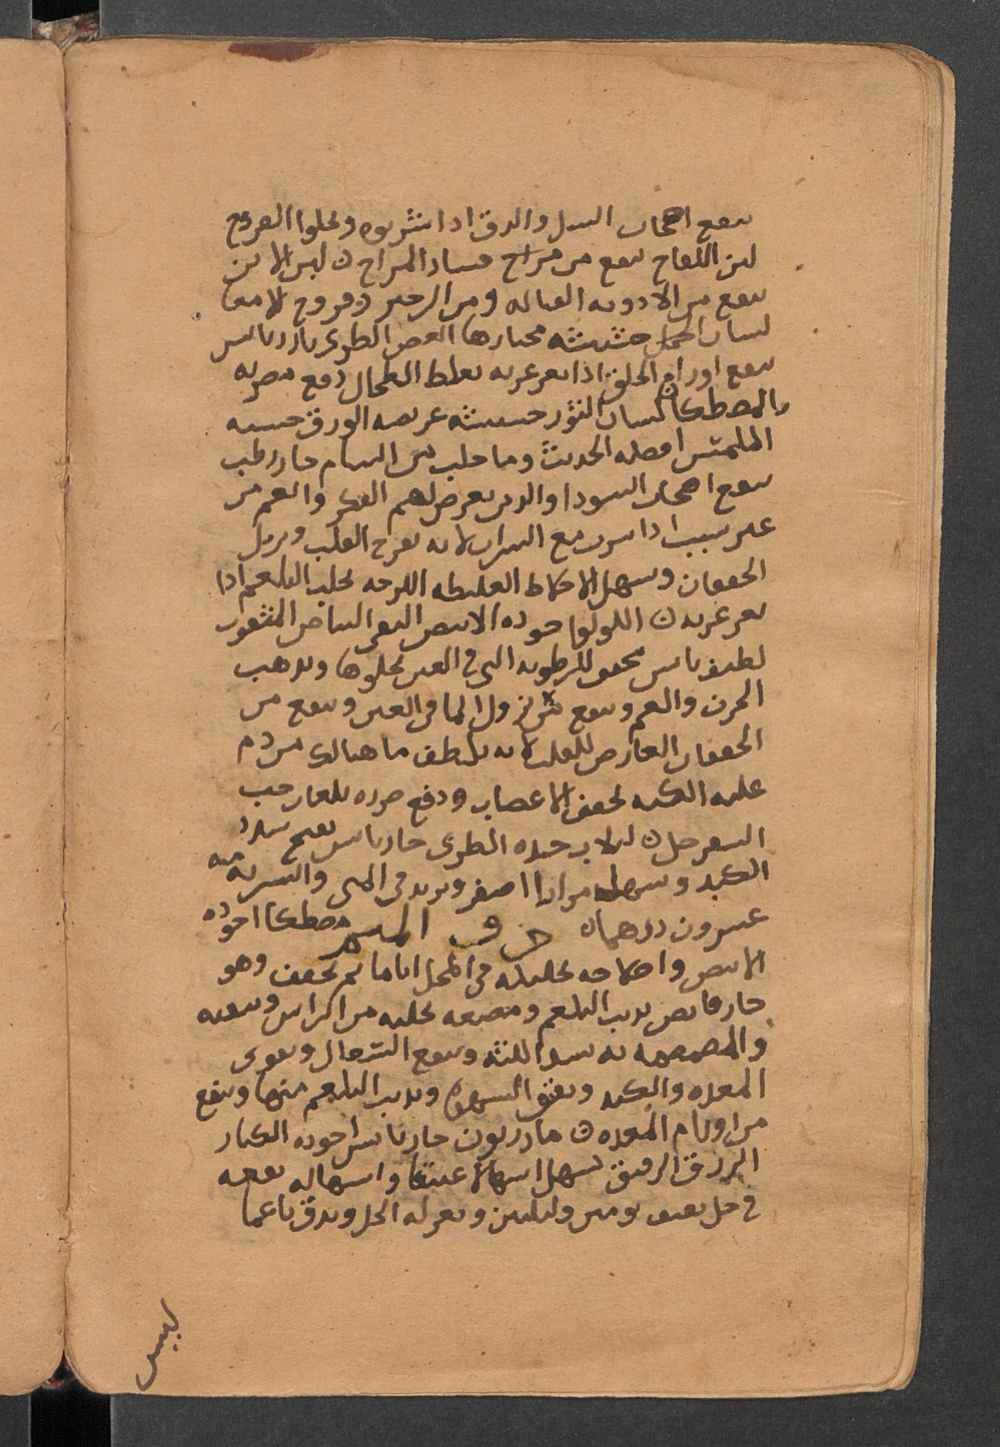 ينفع اصحاب السل والدق اذا شربوه ويجلوا القروح
لبن اللقاح ينفع من مزاج فساد المزاج لبن الاتن
ينفع من الادويه القتاله ومن الزحير وقروح الامعا
لسان الحمل حشيشه مختارها الغض الطرى بارد يابس
ينفع اورام الحلق اذا تغرغر به يغلظ الطحال دفع مضرته
بالمصطكا لسان الثور حشيشه عريضه الورق خشنه
الملمس افضله الحديث وما جلب من الشام حار رطب
ينفع اصحاب السودا والذين يعرض لهم الفكر والغم من
غير سبب اذا شرب مع الشراب لانه يفرح القلب ويزيل
الخفقان ويسهل الاخلاط الغليظه اللزجه يجلب البلغم اذا
تغرغر به اللولوا جوده الابيض النقى البياض المثقوب
لطيف يابس مجفف للرطوبه التى فى العين يجلوها ويذهب
الحزن والغم وينفع من نزول الما فى العين وينفع من
الخفقان العارض للقلب لانه يلطف ما هنالك من دم
غليه الكبه يجفف الاعصاب ودفع ضرره بلعاب حب
السفرجل لبلاب جيده الطرى حار يابس يفتح سدد
الكبد ويسهل مرارا اصفر ويزيد فى المنى والشربه منه
عشرون درهما حرف الميم مصطكا اجوده
الابيض واصلاحه تخليله فى الخل اياما ثم يجفف وهو
حار قابض يذيب البلغم ومضغه يجلبه من الراس وينقيه
والمضمضه به يشد اللثه وينفع السعال ويقوى
المعده والكبد ويفتق الشهوه ويذيب البلغم منها وينفع
من اورام المعده مازريون حار يابس اجوده الكبار
الورق الرقيق يسهل اسهالا عنيفا واسهاله نقعه
فى خل ثقيف يومين وليلتين ويغير له الخل ويدق ناعما